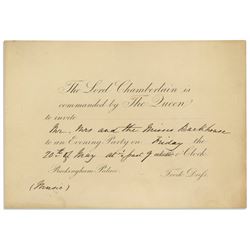 The Lord Chamberlain is
commanded by The Queen
to invite
Mr. Mrs and the Misses Backhouse
to an Evening Party on Friday the
20th of May at ½ past 9 o'Clock.
Buckingham Palace. Frock Dress.
(Music)